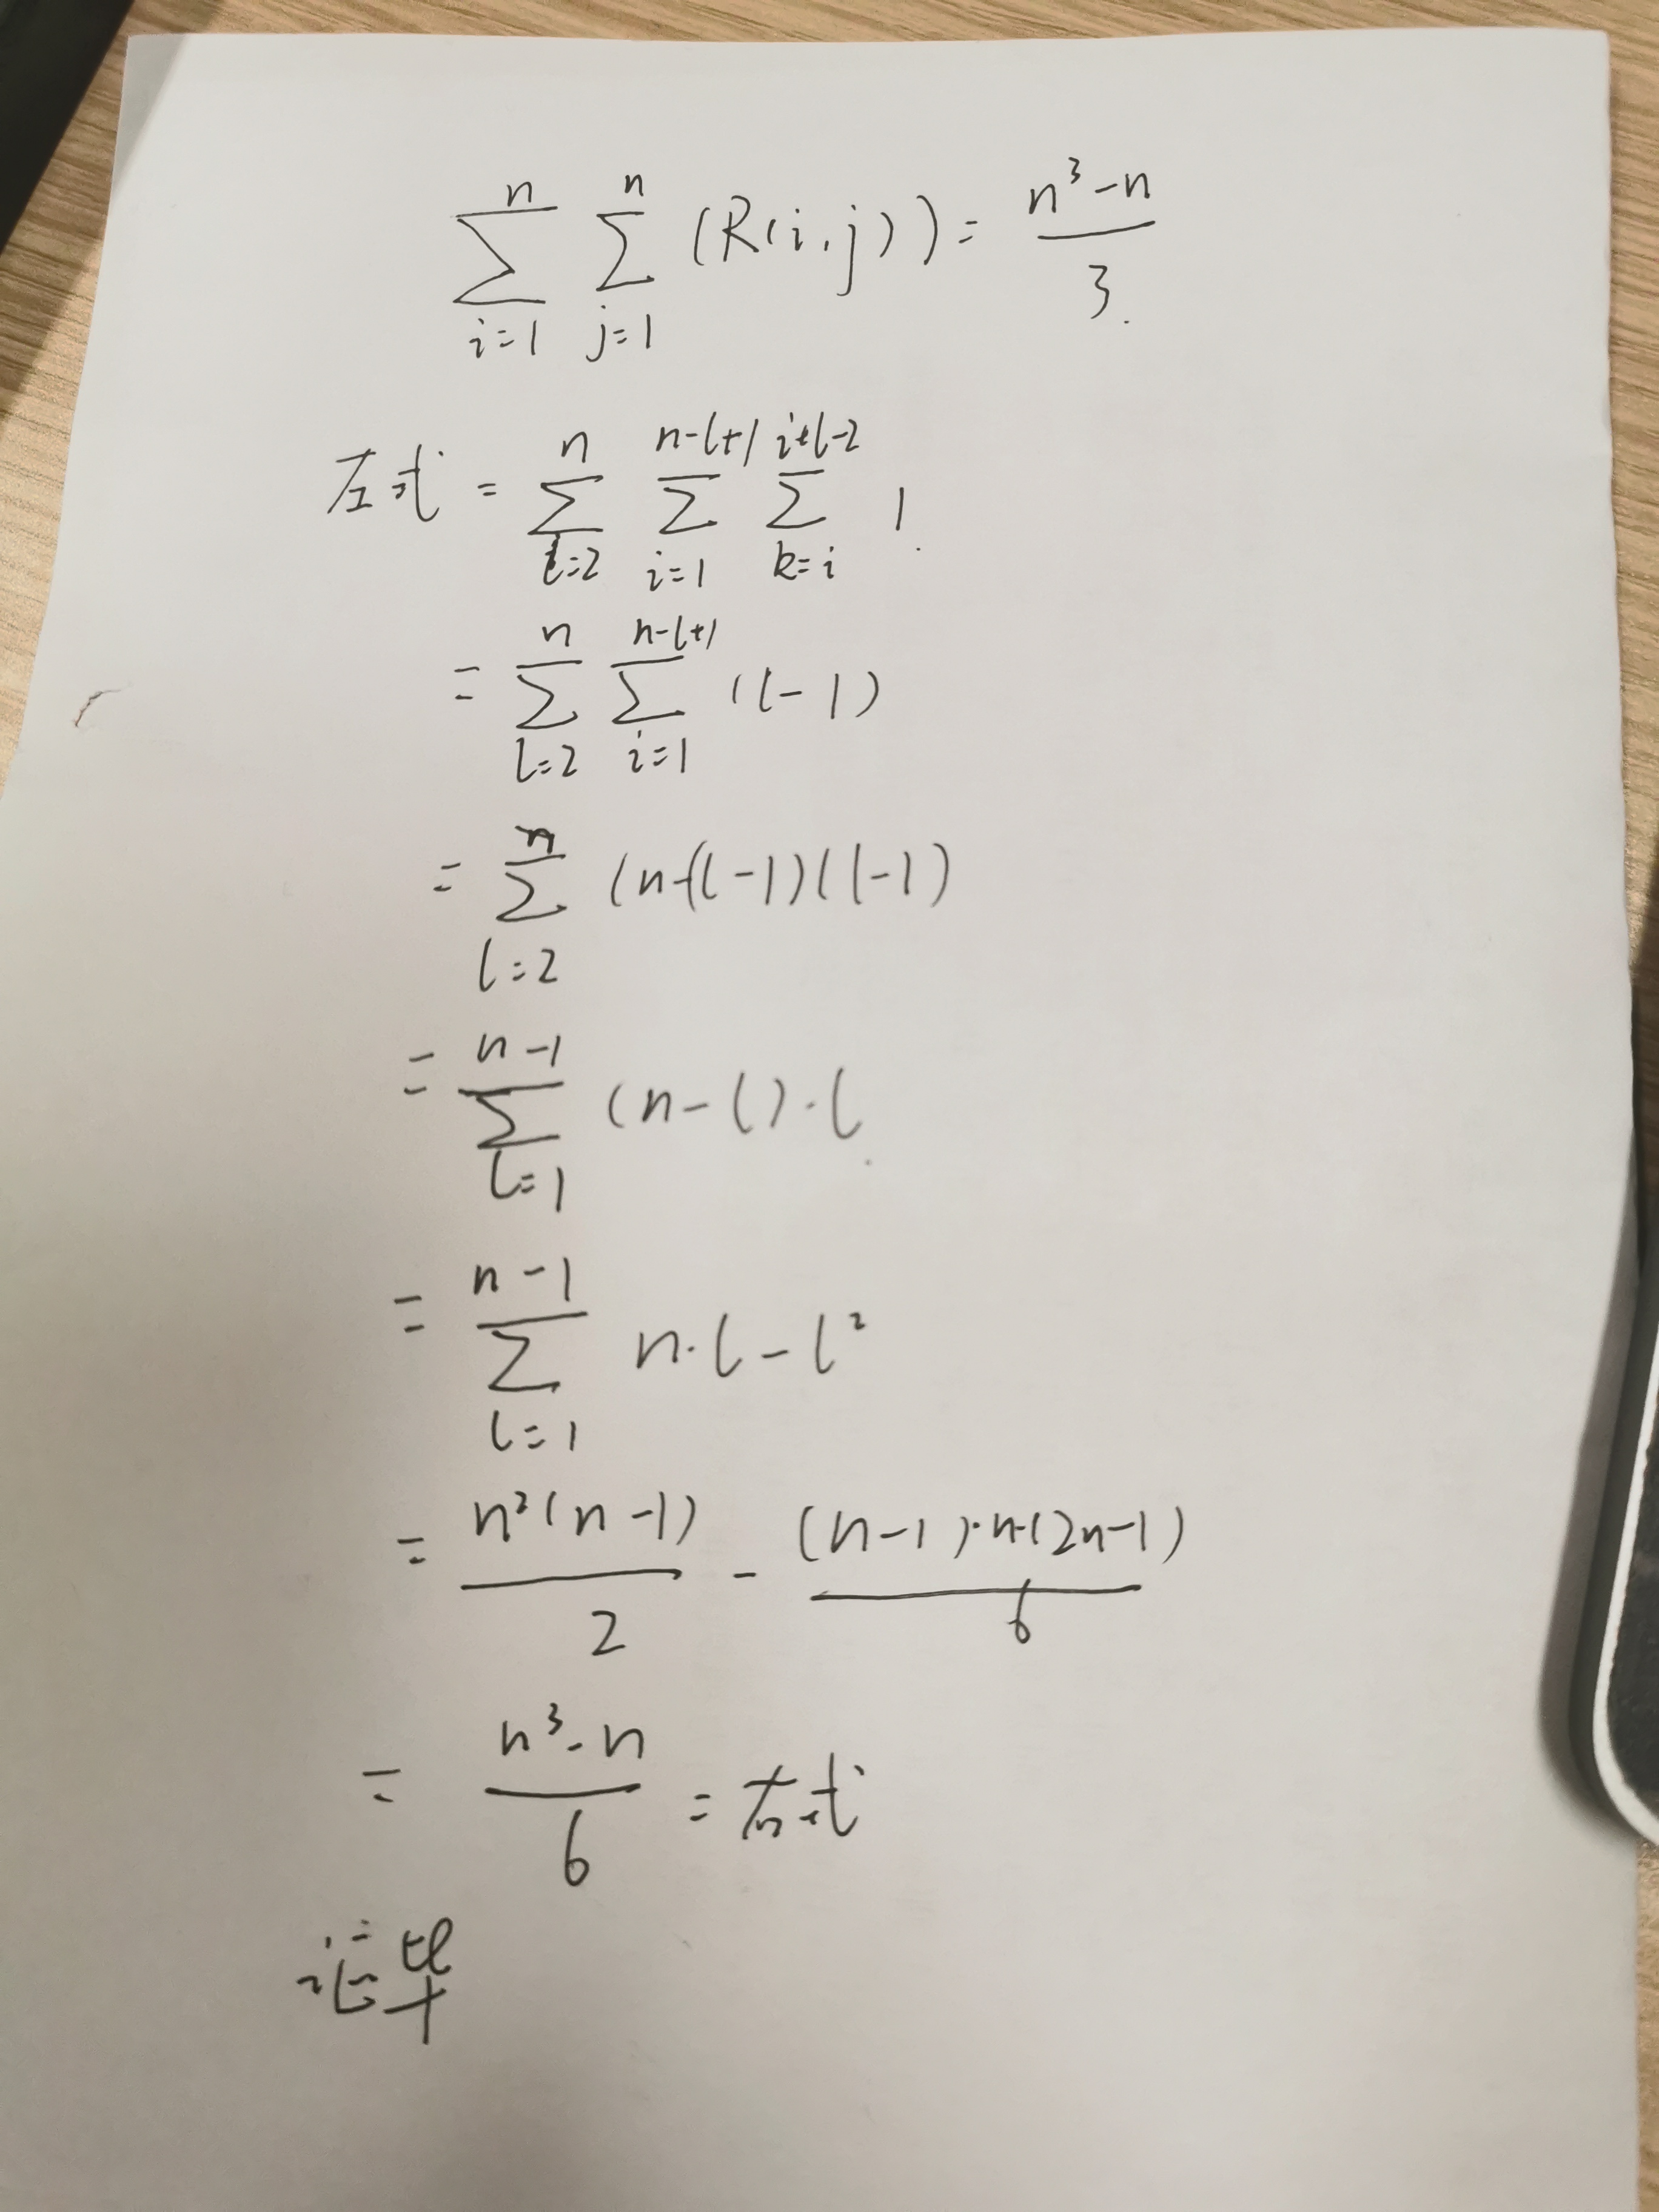 \sum_{i=1}^{n} \sum_{j=1}^{n} (R(i,j)) = \frac{n^3-n}{3}.
左式 = \sum_{l=2}^{n} \sum_{i=1}^{n-l+1} \sum_{k=i}^{i+l-2} 1.
= \sum_{l=2}^{n} \sum_{i=1}^{n-l+1} (l-1)
= \sum_{l=2}^{n} (n-(l-1)(l-1)
= \sum_{l=1}^{n-1} (n-l)·l.
= \sum_{l=1}^{n-1} n·l-l^2
= \frac{n^2(n-1)}{2} - \frac{(n-1)·n·(2n-1)}{6}
= \frac{n^3-n}{6} = 右式
证毕